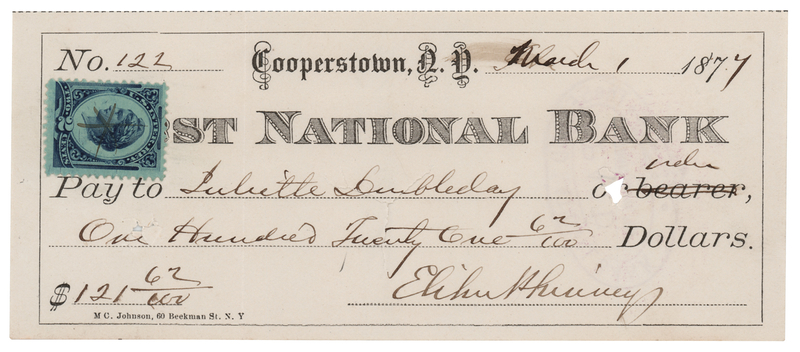 No. 122 Cooperstown, N. Y. March 1 1877
ST NATIONAL BANK
order
Pay to Juliette Doubleday or bearer,
One Hundred Twenty One 62/100 Dollars.
$ 121 62/100 Elihu Phinney
M C. Johnson, 60 Beekman St. N. Y